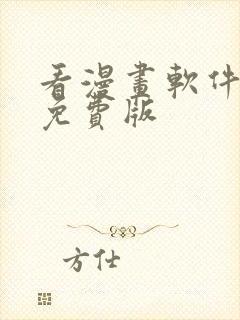 看漫畫軟件
免費版
方仕